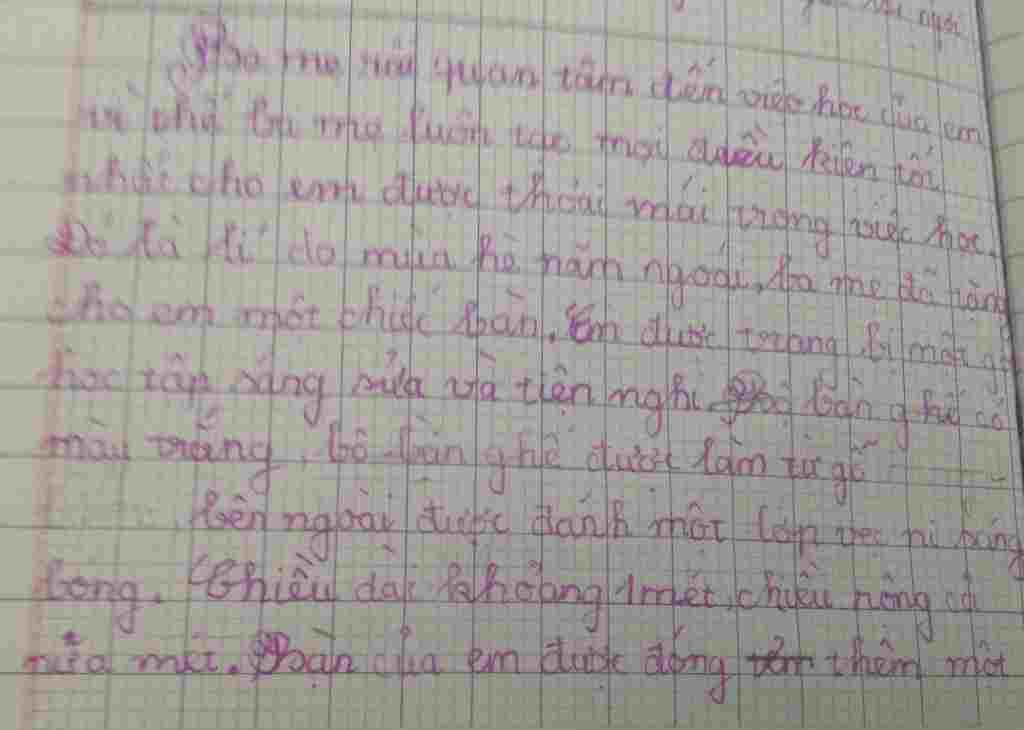 Ba mẹ rất quan tâm đến việc học của em
vì thế ba mẹ luôn tạo mọi điều kiện tốt
nhất cho em được thoải mái trong việc học.
Đó là lí do mùa hè năm ngoái, ba mẹ đã
cho em một chiếc bàn. Em được trang bị một
học tập sáng sủa và tiện nghi. Bộ bàn ghế có
màu trắng, bộ bàn ghế được làm từ gỗ
Bên ngoài được đánh một lớp vec ni bóng
bong. Chiều dài khoảng 1 mét, chiều
nửa mét. Bàn của em được đóng thêm một